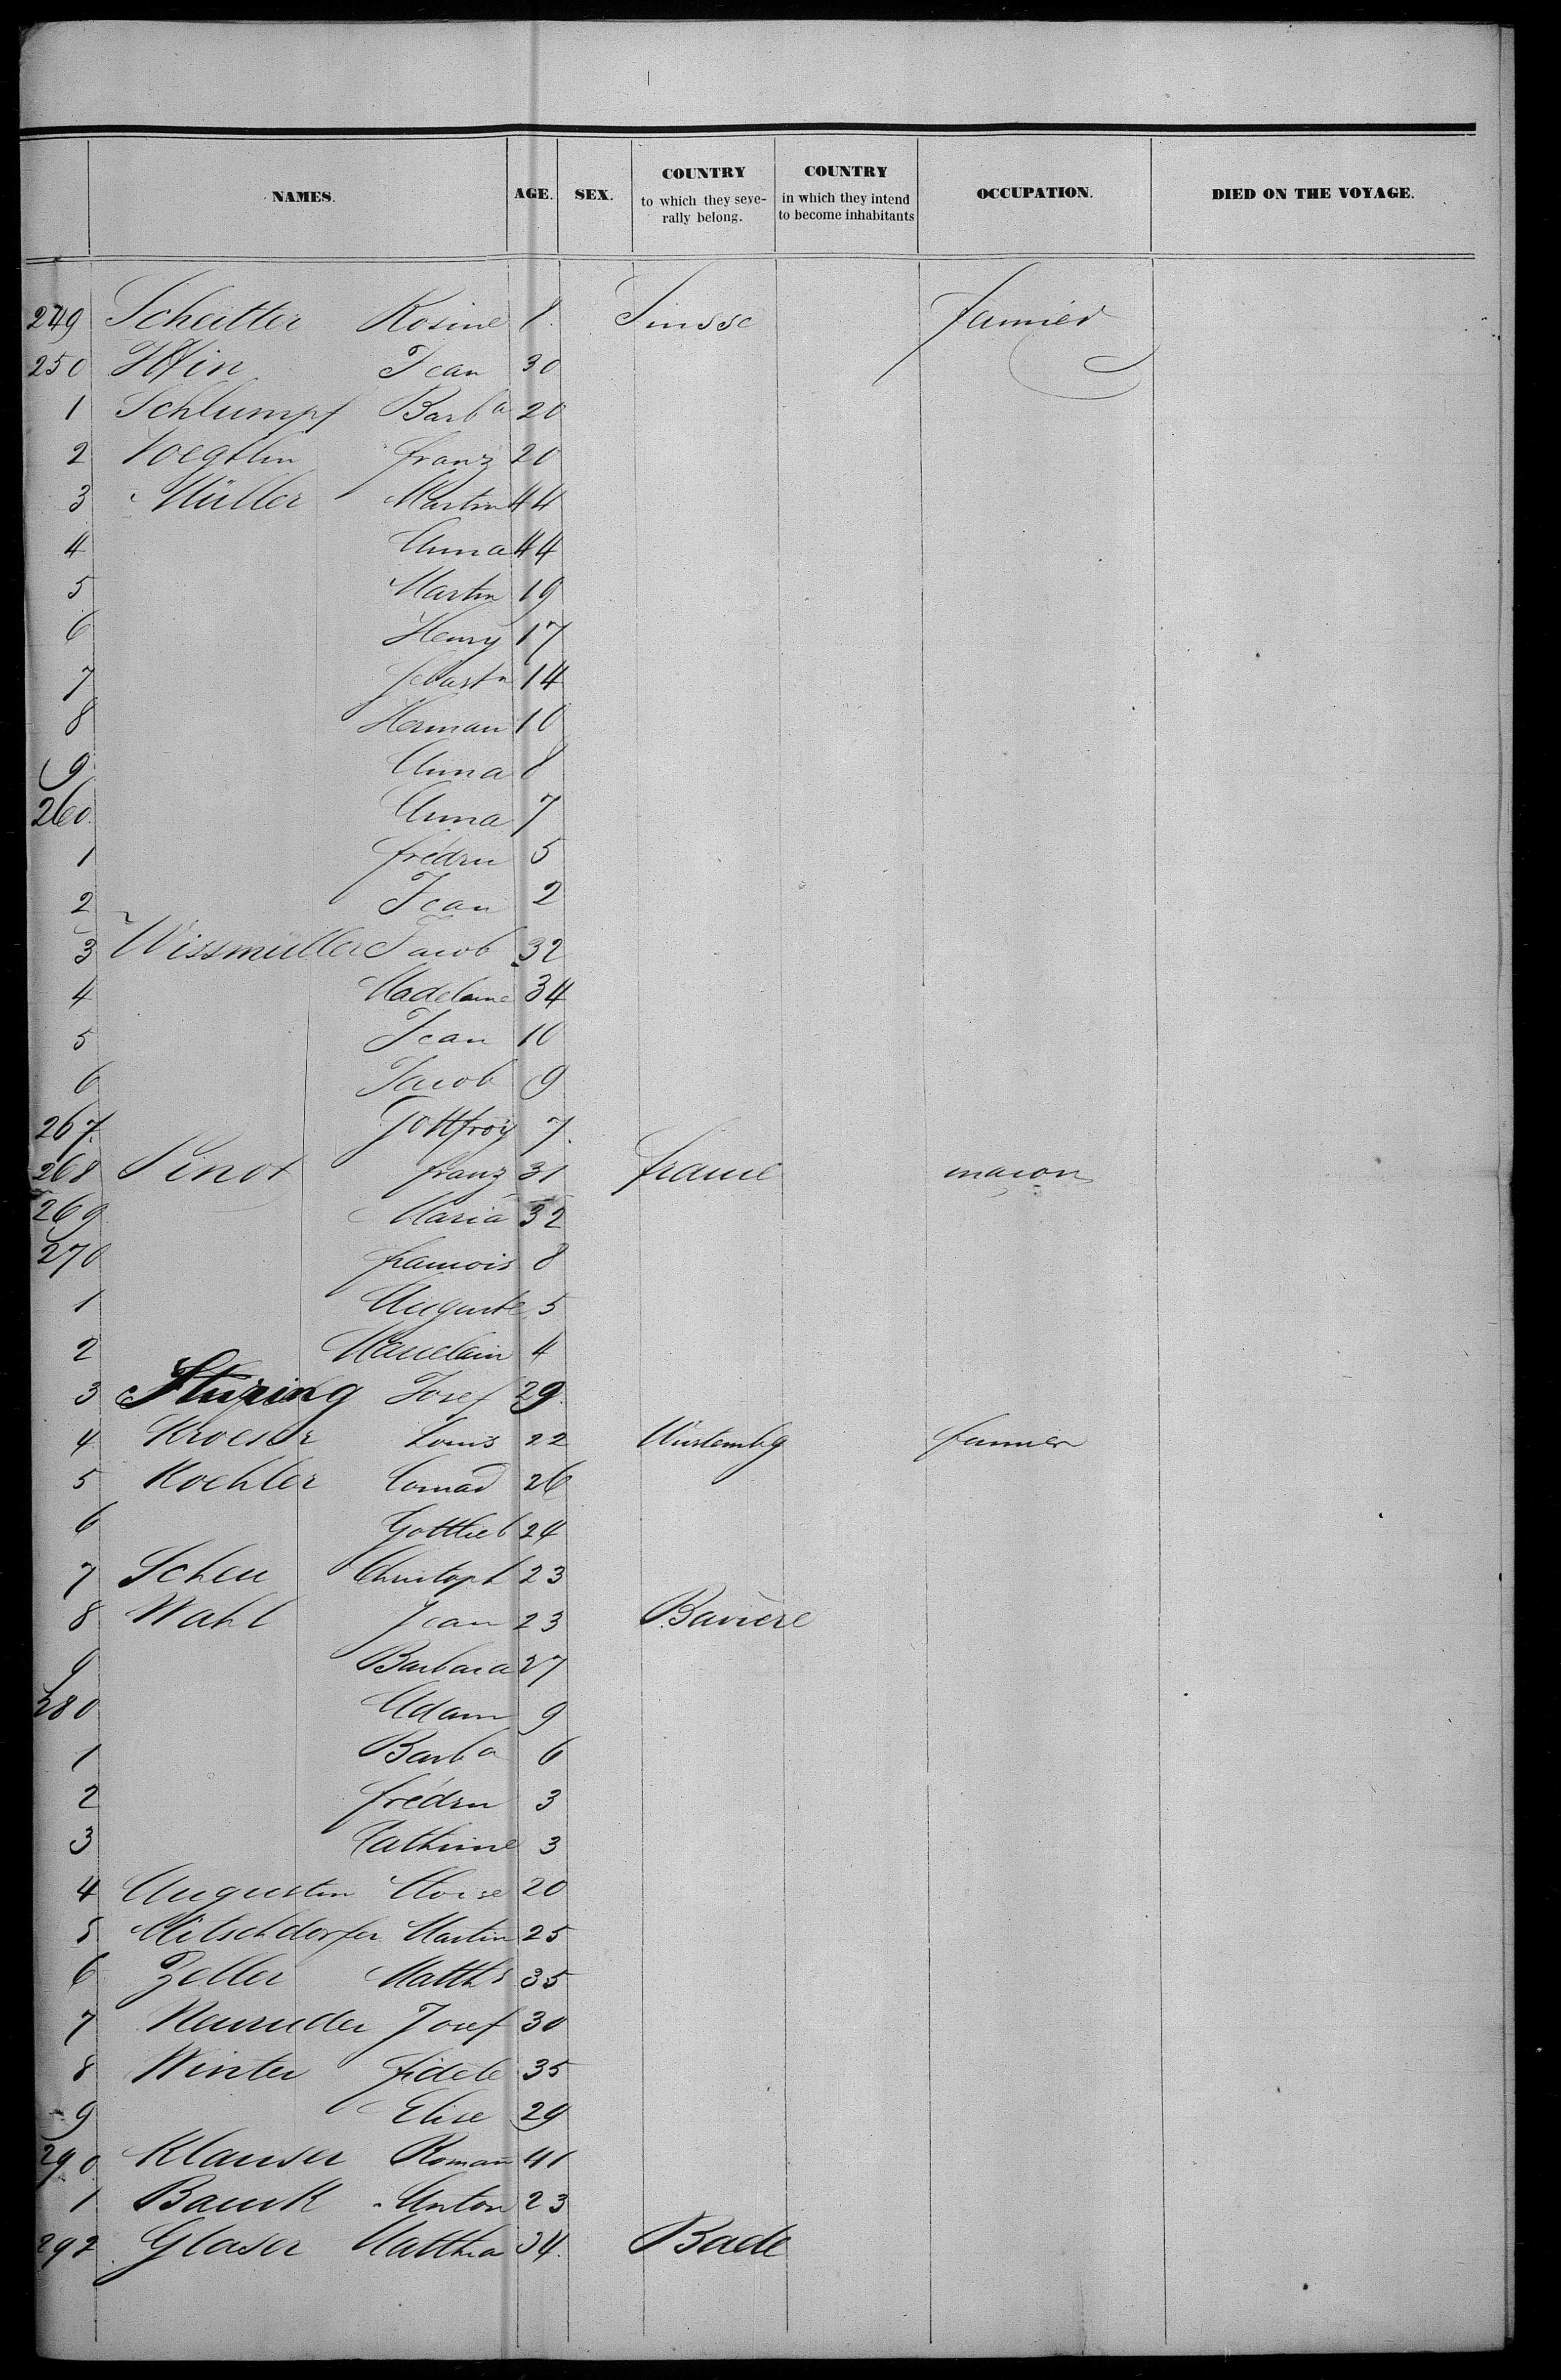 NAMES. AGE. SEX. COUNTRY to which they seve- rally belong. COUNTRY in which they intend to become inhabitants OCCUPATION. DIED ON THE VOYAGE.
249 Scheitter Rosine 1. Suisse farmer
250 Ittin Jean 30
1 Schlumpf Barba 20
2 Voegtlin franz 20
3 Müller Martin 44
4 Anna 44
5 Martin 19
6 Henry 17
7 Sebastn 14
8 Herman 10
9 Anna 8
260. Anna 7
1 frédric 5
2 Jean 2
3 Wissmüller Jacob 32
4 Madelaine 34
5 Jean 10
6 Jacob 9
267. Gottfroy 7.
268 Pinot franz 31 france macon
269 Maria 32
270 francois 8
1 Auguste 5
2 4
3 Sturzing Josef 29.
4 Louis 22 Würtembg farmer
5 Koehler Conrad 26
6 Gottlieb 24
7 Scheu Christoph 23
8 Wahl Jean 23 Bavière
9 Barbara 27
280 Adam 9
1 Barba 6
2 frédric 3
3 Cathrine 3
4 Augustin Moise 20
5 Mitschdorfer Martin 25
6 Zeller Matths 35
7 Josef 30
8 Winter fidele 35
9 Elise 29
290 Klauser Roman 41
1 Bauck Anton 23
292 Glaser Matthia 34. Bade